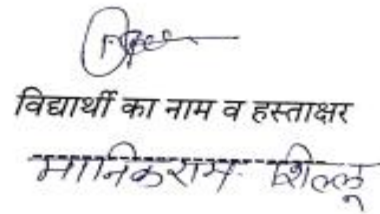 विद्यार्थी का नाम व हस्ताक्षर
मानिकराम शिल्लू